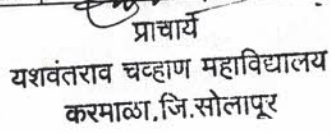 प्राचार्य
यशवंतराव चव्हाण महाविद्यालय
करमाळा.जि.सोलापूर